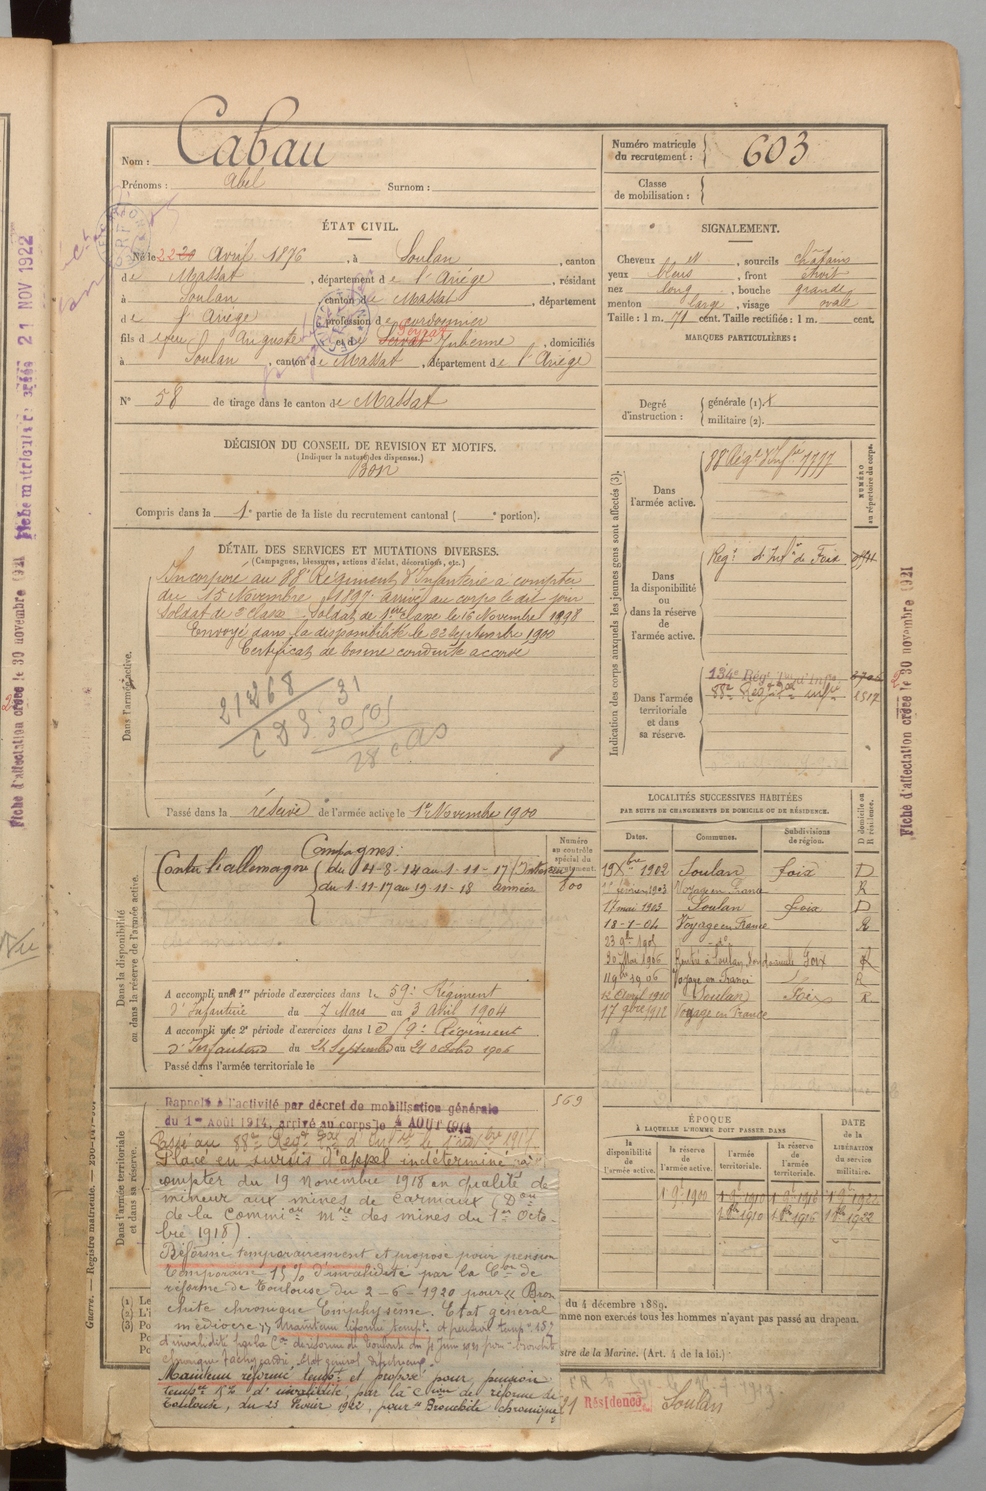 Nom : Cabau
Prénoms : Abel Surnom :
Numéro matricule du recrutement : 603
Classe de mobilisation :
ÉTAT CIVIL.
Né le 22 20 Avril 1876, à Soulan, canton
de Massat, département de l'Ariège, résidant
à Soulan, canton de Massat, département
de l'Ariège, profession de cordonnier
fils d'Auguste et de Servat Julienne, domiciliés
à Soulan, canton de Massat, département de l'Ariège
N° 58 de tirage dans le canton de Massat
SIGNALEMENT.
Cheveux et, sourcils châtains
yeux bleus, front étroit
nez long, bouche grande
menton large, visage ovale
Taille : 1 m. 71 cent. Taille rectifiée : 1 m. cent.
MARQUES PARTICULIÈRES :
Degré d'instruction : générale (1).
militaire (2).
DÉCISION DU CONSEIL DE REVISION ET MOTIFS.
(Indiquer la nature des dispenses.)
Bon
Compris dans la 1e partie de la liste du recrutement cantonal ( e portion).
DÉTAIL DES SERVICES ET MUTATIONS DIVERSES.
(Campagnes, blessures, actions d'éclat, décorations, etc.)
Dans l'armée active.
Incorporé au 88e Régiment d'Infanterie à compter
du 15 Novembre 1897. arrivé au corps le dit jour
Soldat de 2e classe. Soldat de 1ère classe le 16 Novembre 1898
Envoyé dans la disponibilité le 22 Septembre 1900
Certificat de bonne conduite accordé
21268 / 31
Passé dans la réserve de l'armée active le 1er Novembre 1900
Indication des corps auxquels les jeunes gens sont affectés (3).
NUMÉRO au répertoire du corps.
Dans l'armée active.
88 Régt d'Infie
Dans la disponibilité ou dans la réserve de l'armée active.
Régt d'Infie de Foix
Dans l'armée territoriale et dans sa réserve.
134e Régt
88e Régt
LOCALITÉS SUCCESSIVES HABITÉES
PAR SUITE DE CHANGEMENTS DE DOMICILE OU DE RÉSIDENCE.
Dates. Communes. Subdivisions de région. D domicile ou R résidence.
19 Xbre 1902 Soulan Foix D
février 1903 Voyage en France R
17 mai 1903 Soulan Foix D
18-1-04 Voyage en France R
30 Mai 1906 Soulan Foix R
1906 Voyage en France R
12 Avril 1910 Soulan Foix R
17 9bre 1912 Voyage en France
Dans la disponibilité ou dans la réserve de l'armée active.
Numéro au contrôle spécial du recrutement.
Campagnes :
Contre l'allemagne du 4-8-14 au 1-11-17 (Intérieur)
du 1-11-17 au 19-11-18 armées
A accompli une 1re période d'exercices dans le 59e Régiment
d'Infanterie du 7 Mars au 3 Avril 1904
A accompli une 2e période d'exercices dans le 59e Régiment
d'Infanterie du 24 Septembre au 21 octobre 1906
Passé dans l'armée territoriale le
569
Dans l'armée territoriale et dans sa réserve.
Rappelé à l'activité par décret de mobilisation générale
du 1er Août 1914, arrivé au corps le 4 AOUT 1914
Passé au 88e Régt
Placé en sursis d'appel indéterminé à
compter du 19 Novembre 1918 en qualité de
mineur aux mines de Carmaux (Don
de la Commion mre des mines du 1er Octo-
bre 1918).
Réformé temporairement et proposé pour pension
temporaire 15 % d'invalidité par la Con de
réforme de Toulouse du 2-6-1920 pour « Bron
chite chronique Emphysème. Etat général
médiocre » Maintenu réformé tempt. et pension tempre 15 %
d'invalidité par la Con de réforme de Toulouse du juin 1921 pour bronchite
chronique
Maintenu réformé tempt et proposé pour pension
tempre 15 % d'invalidité, par la Comon de réforme de
Toulouse, du 23 février 1922, pour "Bronchite chronique
ÉPOQUE
À LAQUELLE L'HOMME DOIT PASSER DANS
la disponibilité de l'armée active. la réserve de l'armée active. l'armée territoriale. la réserve de l'armée territoriale.
DATE de la LIBÉRATION du service militaire.
1 9b 1900 1 9b 1910 1 9b 1916 1 9b 1922
1 8b 1910 1 8b 1916 1 8b 1922
du 4 décembre 1889.
mme non exercés tous les hommes n'ayant pas passé au drapeau.
stre de la Marine. (Art. 4 de la loi.)
21 Résidence Soulan
Guerre. — Registre matricule. —
Fiche matricule créée 21 NOV 1922
Fiche d'affectation créée le 30 novembre 1921
Fiche d'affectation créée le 30 novembre 1921